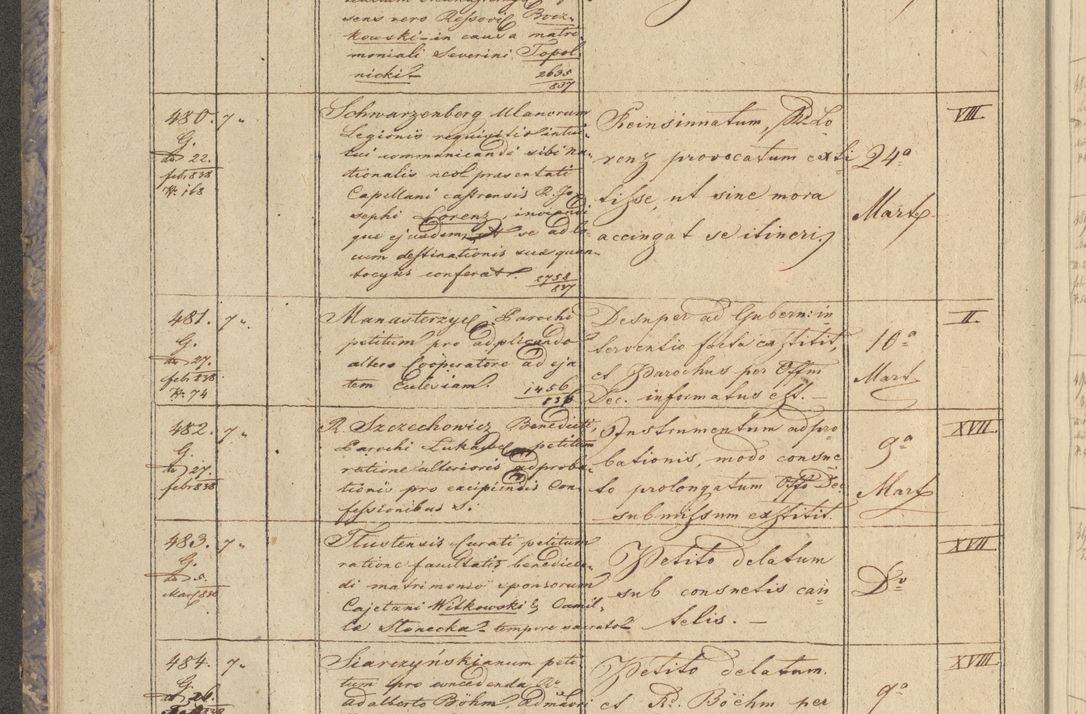 sens nero Assessoris Brez-
kowski in causa matri
moniali Severini Topol
nicki
2635
837
480. 7"
G.
do 22.
febr 838
N: 168
Schwarzenberg Ulanorum
Legionis requisitio intui-
tui communicandi sibi na-
tionalis neol praesentati
Capellani castrensis R. Jo-
sephi Lorenz inviandi
que ejusdem, ut se ad lo-
cum destinationis suae quan-
tocyus conferat.
2758
837
Reinsinnatum, Rd. Lo
renz provocatum exti
tisse, ut sine mora
accingat se itineri.
24a
Mart
VIII
481. 7"
G.
do 27.
febr 838
N: 74
Manasterzyc, Parochi
petitum pro adplicando
altero Cooperatore ad eja
tem Ecclesiam.
1456
836
Desuper ad Gubern: in
terventio facta exstitit,
et Parochus per Offm
Dec. informatus est. —
10a
Mart
II.
482. 7"
G.
do 27.
febr 838
R. Szczechowicz Benedicti,
Parochi petitum
ratione ulterioris adproba-
tionis pro excipiendis Con-
fessionibus S.
Instrumentum adpro
bationis, modo consue
to prolongatum Offo Dec.
submissum exstitit.
9a
Mart
XVII.
483. 7"
G.
do 5.
Mart 838
Tlustensis Curati petitum
ratione facultatis benedicen-
di matrimonio sponsorum
Cajetani Witkowski & Camil-
la Slonecka tempore sacrato
Petito delatum
sub consuetis cau
telis. —
Do
XVII
484. 7"
G.
do 26.
Siarczyńskianum peti
tum pro concedenda Ro
Adalberto Böhm, admavri
Petito delatum.
et Rd. Böhm per
9a
XVIII